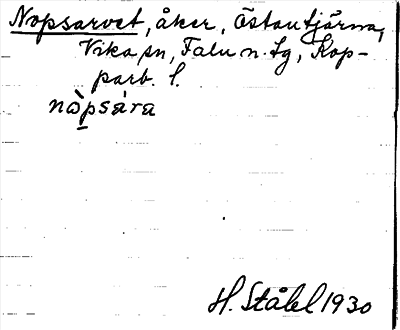 Nopsarvet, åker, Östantjärna,
Vika sn, Falu n. tg, Kop-
parb. l.
nòpsàra
H. Ståhl 1930